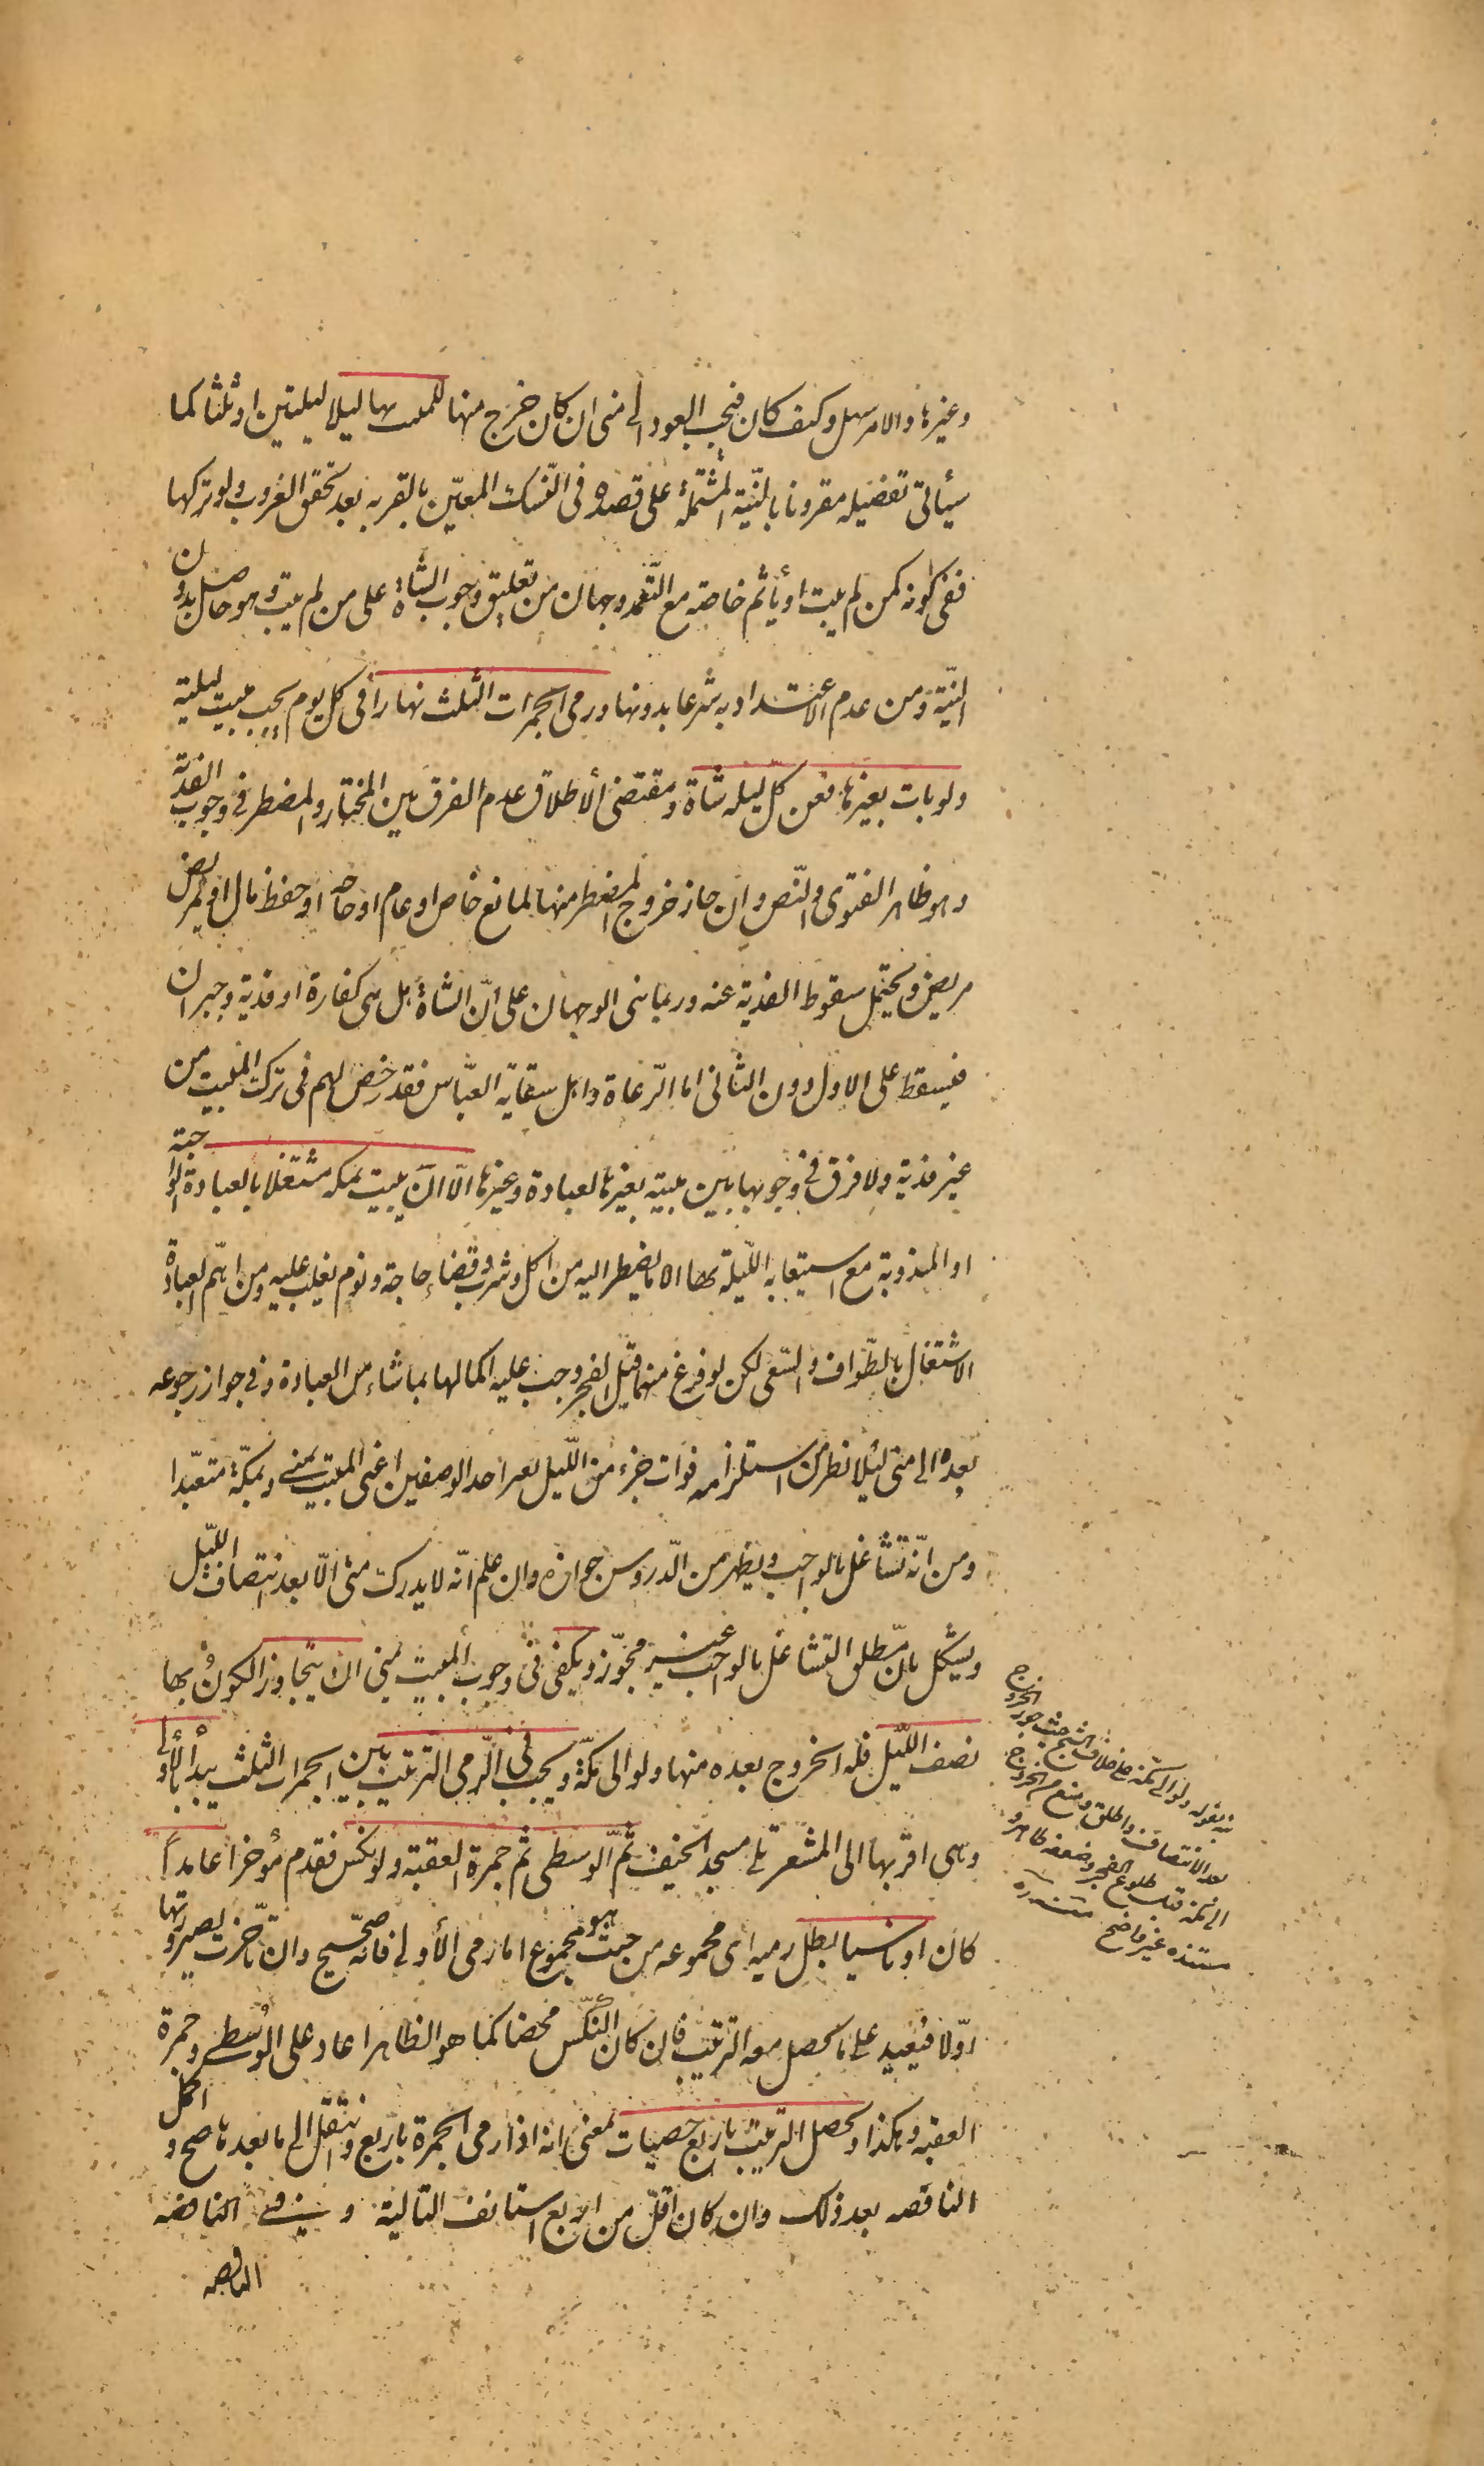 وغيرها والامر سهل وكيف كان فيجب العود الى منى ان كان خرج منها للمبيت بها ليلا ليلتين او ثلثا كما
سيأتي تفصيله مقرونا بالنّية المشتملة على قصده في النّسك المعيّن بالقربه بعد تحقق الغروب ولو تركها
ففي كونه كمن لم يبت او يأثم خاصّه مع التّعمد وجهان من تعليق وجوب الشّاة على من لم يبت وهو حاصل بدون
النيّة ومن عدم الاعتداد به شرعا بدونها ورمي الجمرات الثلث نهاراً في كل يوم يجب مبيت ليلته
ولو بات بغيرها فعن كل ليله شاة ومقتضى الأطلاق عدم الفرق بين المختار والمضطر في وجوب الفدية
وهو ظاهر الفتوى والنّص وان جاز خروج المضطر منها لمانع خاص او عام او حاجه او حفظ مال او تمريض
مريض ويحتمل سقوط الفدية عنه وربما بنى الوجهان على انّ الشاة هل هي كفارة او فدية وجبران
فيسقط على الاول دون الثاني اما الرّعاة واهل سقاية العبّاس فقد رخص لهم في ترك المبيت من
غير فدية ولا فرق في وجوبها بين مبيته بغيرها لعبادة وغيرها الّا ان يبيت بمكه مشتغلا بالعبادة الواجبة
او المندوبة مع استيعابه اللّيلة بها الا ما يضطر اليه من اكل وشرب وقضاء حاجة ونوم يغلب عليه ومن اهمّ العبادة
الاشتغال بالطّواف والسّعي لكن لو فرغ منهما قبل الفجر وجب عليه اكمالها بما شاء من العبادة وفي جواز رجوعه
بعده الى منى ليلا نظر من استلزامه فوات جزء من اللّيل بغير احد الوصفين اعني المبيت بمنى وبمكّة متعبّدا
ومن انّه تشاغل بالواجب ويظهر من الدّروس جوازه وان علم انّه لا يدرك منى الّا بعد انتصاف اللّيل
ويشكل بانّ مطلق التشاغل بالواجب غير مجوّز ويكفى في وجوب المبيت بمنى ان يتجاوز الكون بها
نصف اللّيل فله الخروج بعده منها ولو الى مكّة ويجب في الرّمي الترتيب بين الجمرات الثلث يبدأ بالأولى
وهي اقربها الى المشعر تلي مسجد الخيف ثمّ الوسطى ثم جمرة العقبة ولو نكس فقدم مؤخرا عامداً
كان او ناسيا بطل رميه اى مجموعه من حيث هو مجموع اما رمي الأولى فانّه صحيح وان تأخرت لصيرورتها
اوّلا فيعيد على ما يحصل معه الترتيب فان كان النّكس محضا كما هو الظاهر اعاد على الوُسطى وجمرة
العقبه وهكذا ويحصل الترتيب باربع حصيات بمعنى انه اذا رمى الجمرة باربع وانتقل الى ما بعدها صح واكمل
الناقصه بعد ذلك وان كان اقلّ من اربع استانف التالية وفي الناقصه
الناقصه
نبه بقوله ولو الى مكة على خلاف الشيخ حيث جوز الخروج
بعد الانتصاف واطلق ومنع من الخروج
الى مكة قبل طلوع الفجر وضعفه ظاهر و
مستنده غير واضح